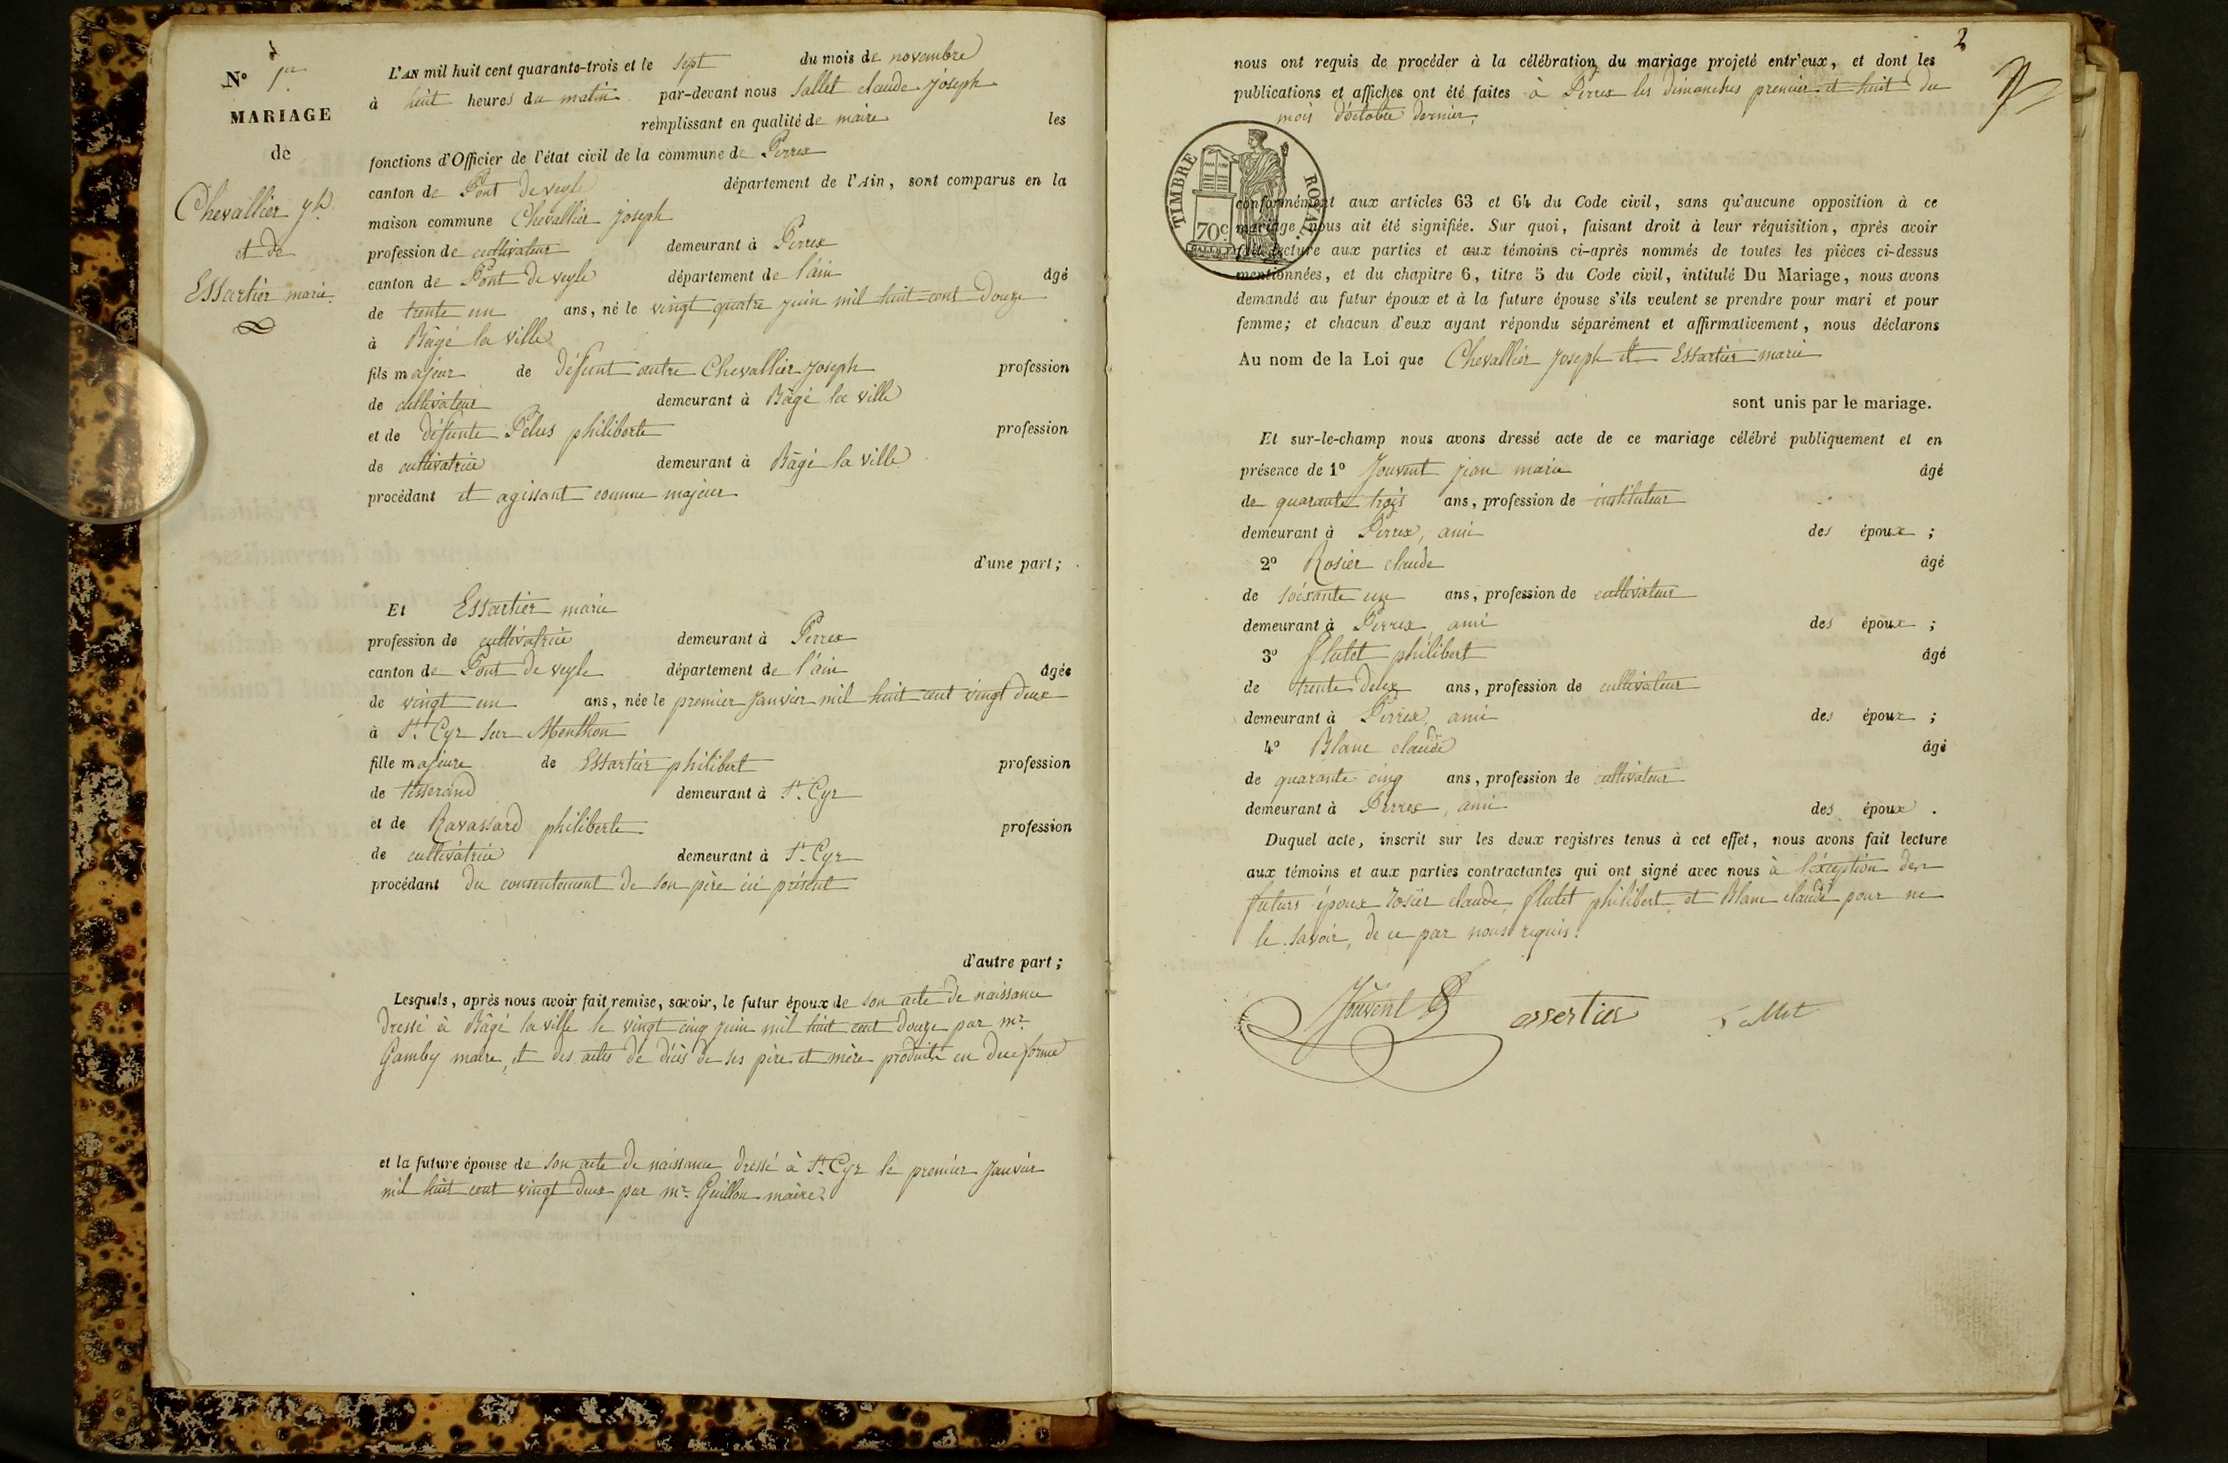 N° 1er
MARIAGE
de
Chevallier jh.
et de
Essartier marie.
L'AN mil huit cent quarante-trois et le sept du mois de novembre
à huit heures du matin par-devant nous Sallet claude joseph
remplissant en qualité de maire les
fonctions d'Officier de l'état civil de la commune de Perrex
canton de Pont de veyle département de l'Ain, sont comparus en la
maison commune Chevallier joseph
profession de cultivateur demeurant à Perrex
canton de Pont de veyle département de l'ain âgé
de trente un ans, né le vingt quatre juin mil huit cent Douze
à Bâgé la ville
fils majeur de défunt autre Chevallier joseph profession
de cultivateur demeurant à Bâgé la ville
et de défunte Pelus philiberte profession
de cultivatrice demeurant à Bâgé la ville
procédant et agissant comme majeur
d'une part;
Et Essartier marie
profession de cultivatrice demeurant à Perrex
canton de Pont de veyle département de l'ain âgée
de vingt un ans, née le premier janvier mil huit cent vingt deux
à St. Cyr sur Menthon
fille majeure de Essartier philibert profession
de tisserand demeurant à St. Cyr
et de Ravassard philiberte profession
de cultivatrice demeurant à St. Cyr
procédant du consentement de son père ici présent
d'autre part;
Lesquels, après nous avoir fait remise, savoir, le futur époux de son acte de naissance
dressé à Bâgé la ville le vingt cinq juin mil huit cent douze par mr.
Gamby maire, et des actes de décès de ses père et mère produits en due forme
et la future épouse de son acte de naissance dressé à St. Cyr le premier janvier
mil huit cent vingt deux par mr. Guillon maire.
2
nous ont requis de procéder à la célébration du mariage projeté entr'eux, et dont les
publications et affiches ont été faites à Perrex les dimanches premier et huit du
mois d'octobre dernier,
TIMBRE ROYAL.
70c
conformément aux articles 63 et 64 du Code civil, sans qu'aucune opposition à ce
mariage nous ait été signifiée. Sur quoi, faisant droit à leur réquisition, après avoir
fait lecture aux parties et aux témoins ci-après nommés de toutes les pièces ci-dessus
mentionnées, et du chapitre 6, titre 5 du Code civil, intitulé Du Mariage, nous avons
demandé au futur époux et à la future épouse s'ils veulent se prendre pour mari et pour
femme; et chacun d'eux ayant répondu séparément et affirmativement, nous déclarons
Au nom de la Loi que Chevallier joseph et Essartier marie
sont unis par le mariage.
Et sur-le-champ nous avons dressé acte de ce mariage célébré publiquement et en
présence de 1° Jouvent jean marie âgé
de quarante trois ans, profession de instituteur
demeurant à Perrex, ami des époux;
2° Rosier claude âgé
de soixante un ans, profession de cultivateur
demeurant à Perrex ami des époux;
3° flutet philibert âgé
de trente deux ans, profession de cultivateur
demeurant à Perrex, ami des époux;
4° Blanc claude âgé
de quarante cinq ans, profession de cultivateur
demeurant à Perrex, ami des époux.
Duquel acte, inscrit sur les deux registres tenus à cet effet, nous avons fait lecture
aux témoins et aux parties contractantes qui ont signé avec nous à l'éxception des
futurs époux rosier claude, flutet philibert et Blanc claude pour ne
le savoir, de ce par nous requis.
Jouvent essertier Sallet